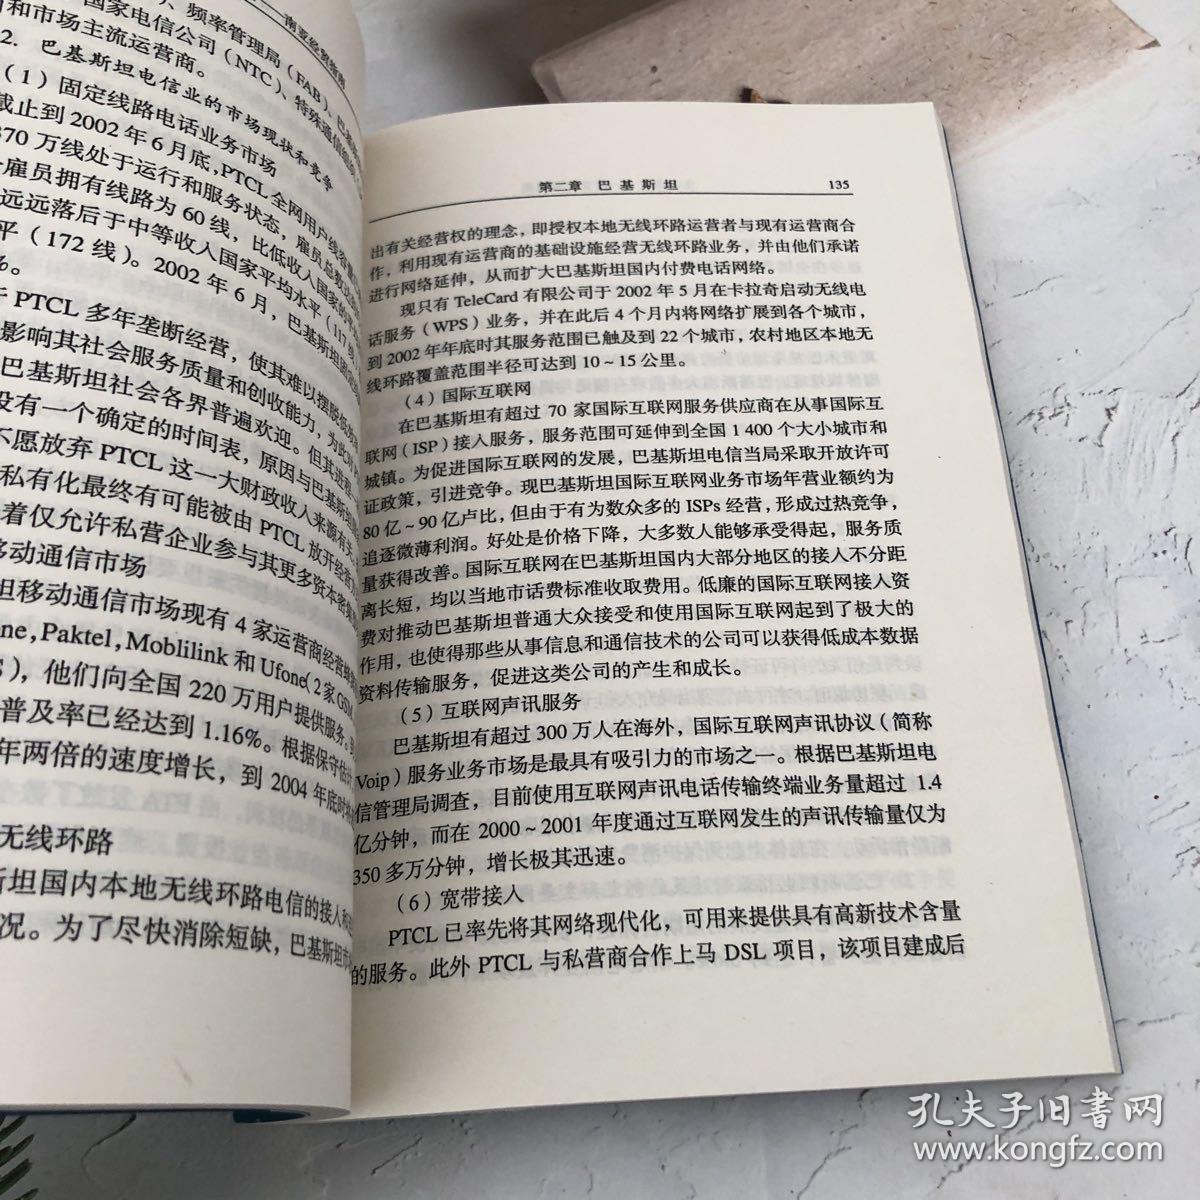 南亚经贸指南
、频率管理局(FAB)、巴基
国家电信公司(NTC)、特殊通信组织
和市场主流运营商。
2. 巴基斯坦电信业的市场现状和竞争
(1)固定线路电话业务市场
截止到2002年6月底,PTCL全网用户线容量
370万线处于运行和服务状态,雇员总数达
雇员拥有线路为60线,比低收入国家的平
远远落后于中等收入国家平均水平(117线
平(172线)。2002年6月,巴基斯坦固定
%。
于PTCL多年垄断经营,使其难以摆脱低
影响其社会服务质量和创收能力,为此
巴基斯坦社会各界普遍欢迎。但其进程
没有一个确定的时间表,原因与巴基斯坦
不愿放弃PTCL这一大财政收入来源有关
私有化最终有可能被由PTCL放开经营
着仅允许私营企业参与其更多资本密集
移动通信市场
坦移动通信市场现有4家运营商经营
one,Paktel,Moblilink和Ufone(2家GSM
S),他们向全国220万用户提供服务。
普及率已经达到1.16%。根据保守估计
年两倍的速度增长,到2004年底时
无线环路
斯坦国内本地无线环路电信的接入和
况。为了尽快消除短缺,巴基斯坦
第二章 巴基斯坦 135
出有关经营权的理念,即授权本地无线环路运营者与现有运营商合
作,利用现有运营商的基础设施经营无线环路业务,并由他们承诺
进行网络延伸,从而扩大巴基斯坦国内付费电话网络。
现只有TeleCard有限公司于2002年5月在卡拉奇启动无线电
话服务(WPS)业务,并在此后4个月内将网络扩展到各个城市,
到2002年年底时其服务范围已触及到22个城市,农村地区本地无
线环路覆盖范围半径可达到10~15公里。
(4)国际互联网
在巴基斯坦有超过70家国际互联网服务供应商在从事国际互
联网(ISP)接入服务,服务范围可延伸到全国1 400个大小城市和
城镇。为促进国际互联网的发展,巴基斯坦电信当局采取开放许可
证政策,引进竞争。现巴基斯坦国际互联网业务市场年营业额约为
80亿~90亿卢比,但由于有为数众多的ISPs经营,形成过热竞争,
追逐微薄利润。好处是价格下降,大多数人能够承受得起,服务质
量获得改善。国际互联网在巴基斯坦国内大部分地区的接入不分距
离长短,均以当地市话费标准收取费用。低廉的国际互联网接入资
费对推动巴基斯坦普通大众接受和使用国际互联网起到了极大的
作用,也使得那些从事信息和通信技术的公司可以获得低成本数据
资料传输服务,促进这类公司的产生和成长。
(5)互联网声讯服务
巴基斯坦有超过300万人在海外,国际互联网声讯协议(简称
Voip)服务业务市场是最具有吸引力的市场之一。根据巴基斯坦电
信管理局调查,目前使用互联网声讯电话传输终端业务量超过1.4
亿分钟,而在2000~2001年度通过互联网发生的声讯传输量仅为
350多万分钟,增长极其迅速。
(6)宽带接入
PTCL已率先将其网络现代化,可用来提供具有高新技术含量
的服务。此外PTCL与私营商合作上马DSL项目,该项目建成后
孔夫子旧书网
www.kongfz.com